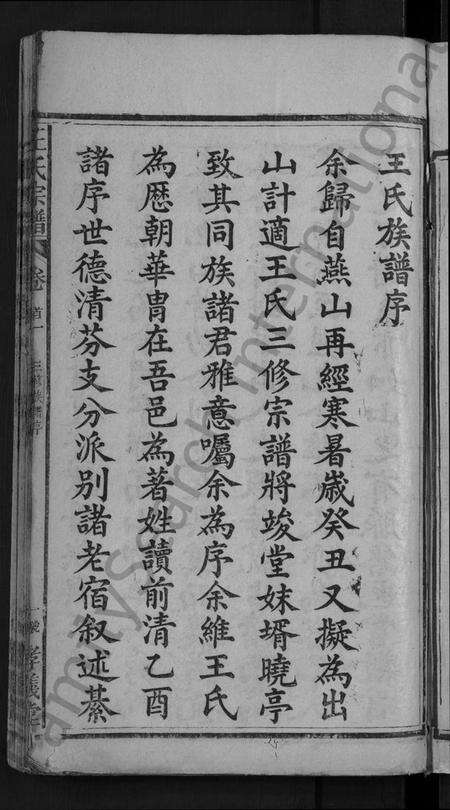 王氏族譜序
余歸自燕山再經寒暑歲癸丑又擬為出
山計適王氏三修宗譜將竣堂妹壻曉亭
致其同族諸君雅意囑余為序余維王氏
為歷朝華冑在吾邑為著姓讀前清乙酉
諸序世德清芬支分派別諸老宿叙述綦
王氏宗譜 卷首一 王氏族譜序 孝義堂
FamilySearch International